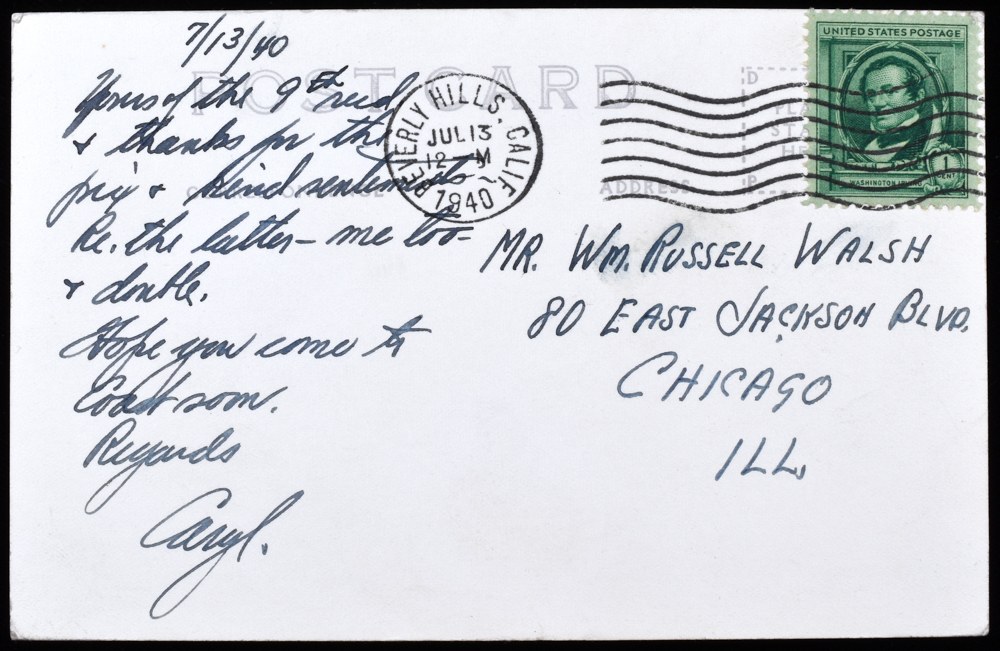 7/13/40
POST CARD
Yours of the 9th recd
& thanks for the
pix & kind sentiments
Re. the letter - me too -
& double.
Hope you come to
Coast soon.
Regards
Caryl.
BEVERLY HILLS, CALIF.
JUL 13
12 M
1940
UNITED STATES POSTAGE
WASHINGTON IRVING
1
CENT
ADDRESS
MR. WM. RUSSELL WALSH
80 EAST JACKSON BLVD.
CHICAGO
ILL.